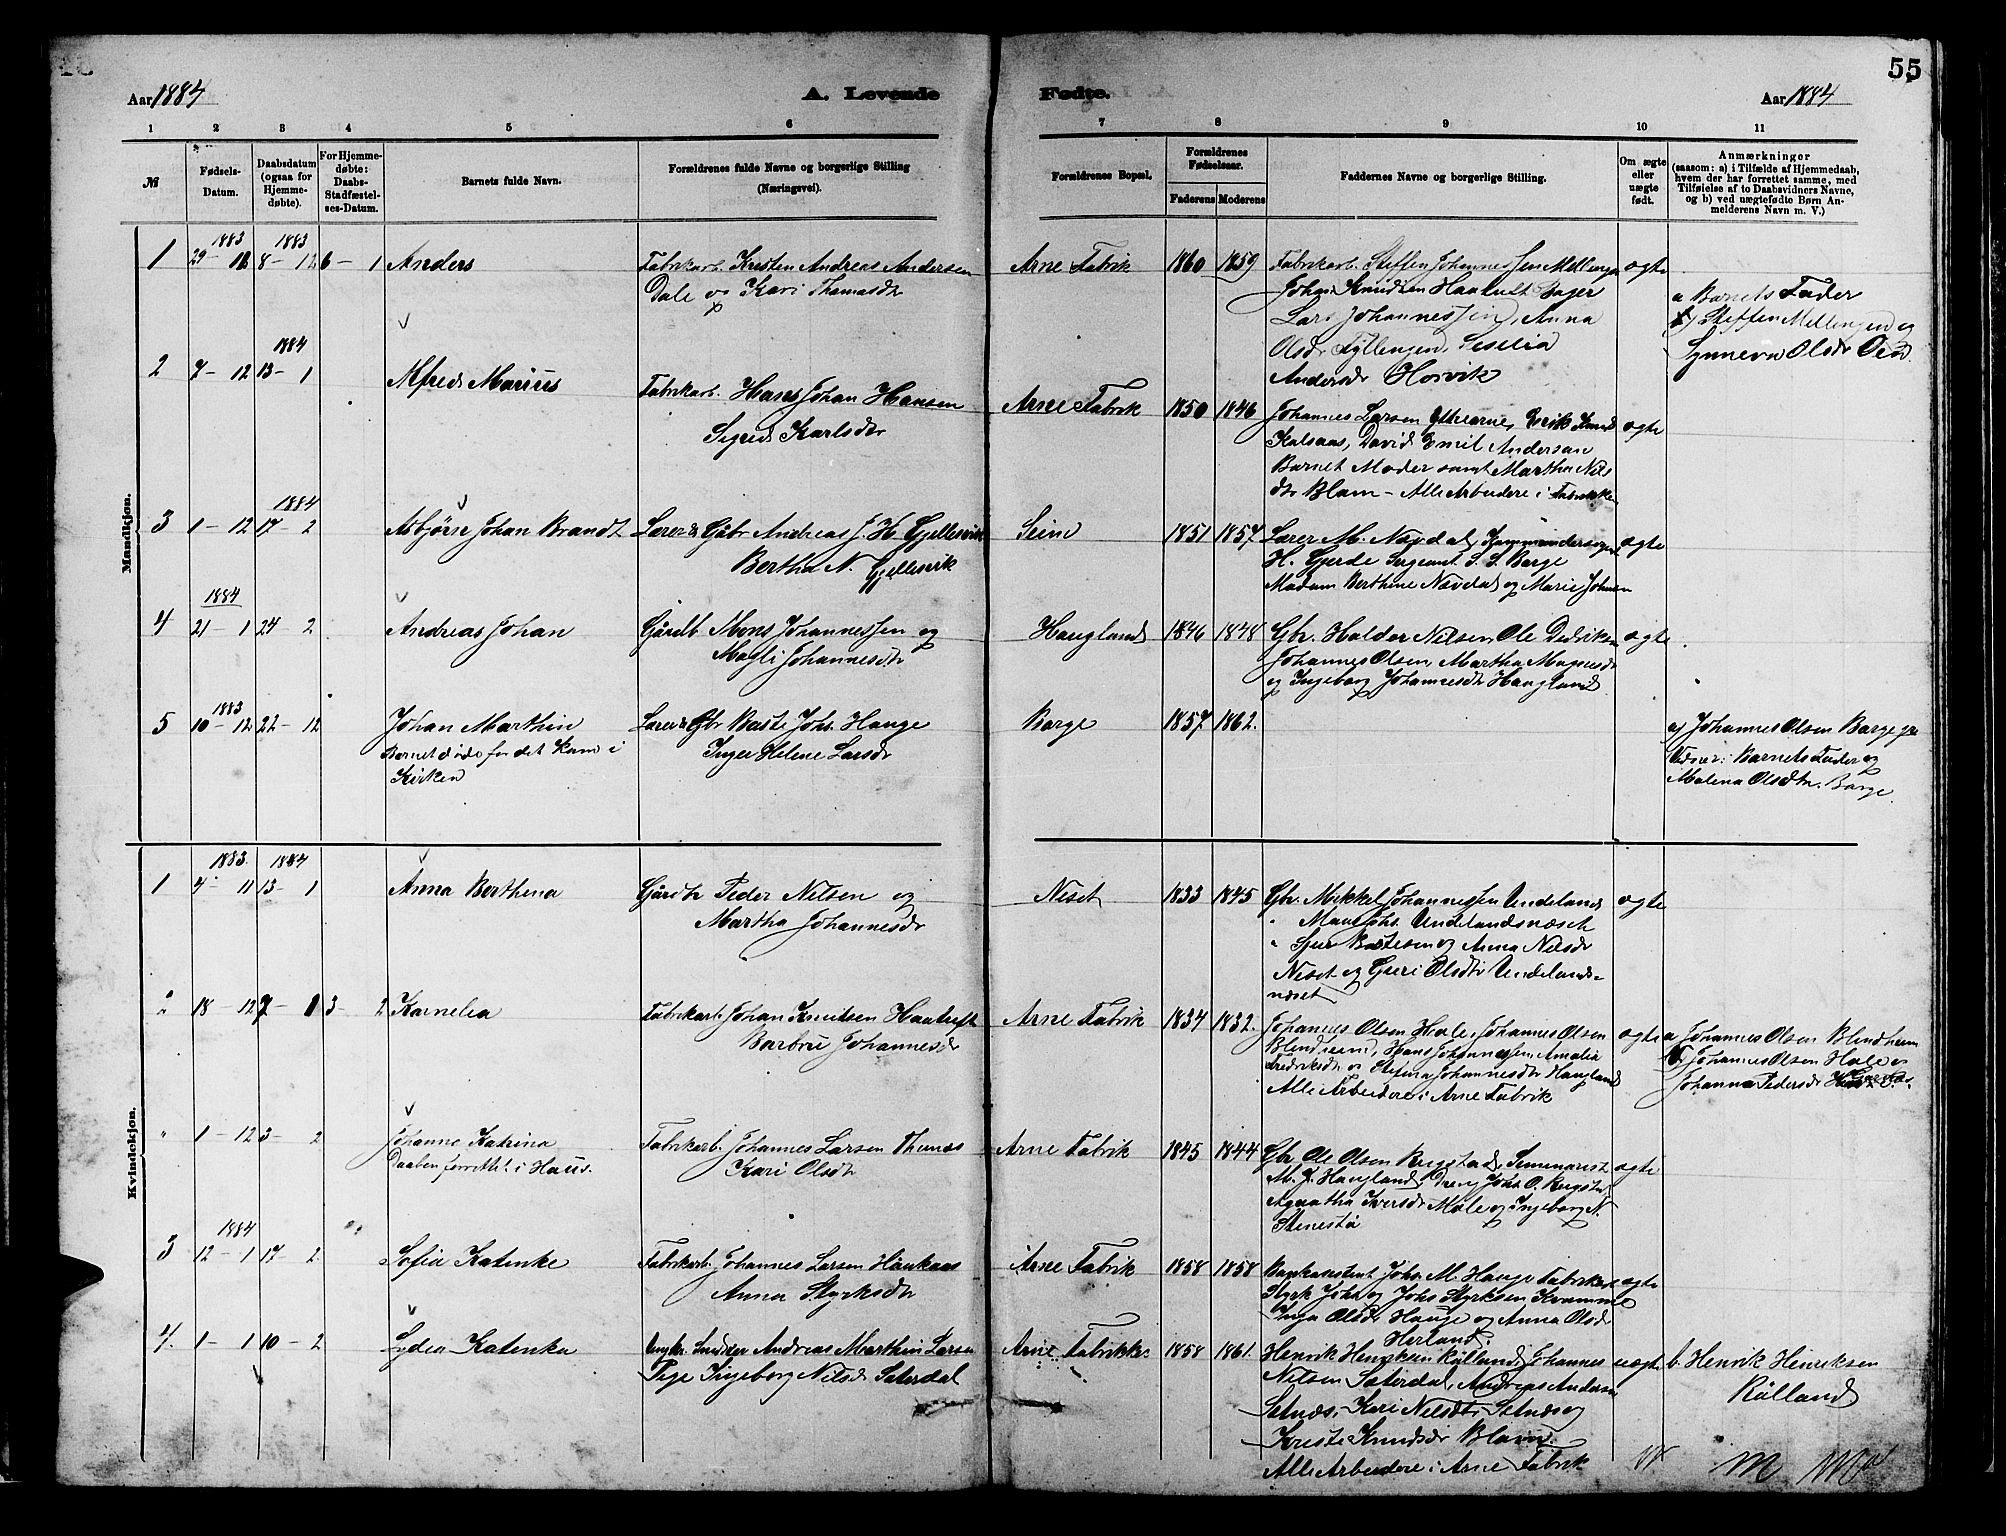 55
Aar 1884
A. Levende
Fødte.
Aar 1884
1 2 3 4 5 6 7 8 9 10 11
№
Fødsels-
Datum.
Daabsdatum
(ogsaa for
Hjemme-
døbte).
For Hjemme-
døbte:
Daabs-
Stadfæstel-
ses-Datum.
Barnets fulde Navn.
Forældrenes fulde Navne og borgerlige Stilling
(Næringsvei).
Forældrenes Bopæl.
Forældrenes
Fødselsaar.
Faderens Moderens
Faddernes Navne og borgerlige Stilling.
Om ægte
eller
uægte
født.
Anmærkninger
(saasom: a) i Tilfælde af Hjemmedaab,
hvem der har forrettet samme, med
Tilføielse af to Daabsvidners Navne,
og b) ved uægtefødte Børn An-
melderens Navn m. V.)
Mandkjøn.
1883 1883
1 29– 8–12 6–1 Anders
Fabrikarb. Kristen Andreas Andersen
Dale og Kari Thomasdtr
Arne Fabrik 1860 1859
Fabrikarb. Steffen Johannessen Mellingen
Johan Knudsen Haatuft
Lars Johannessen, Anna
Olsdr Fyllingen, Sesilia
Andersdr Horvik
ægte
a Barnets Fader
b) Steffen Mellingen og
Synneva Olsdr
1884
2 7–12 13–1 Alfred Marius
Fabrikarb. Hans Johan Hansen
Sigrid Karlsdtr
Arne Fabrik 1850 1846
Johannes Larsen Ytrearne, Erik
Kalsaas, David Emil Andersen
Barnet Moder samt Martha Nils
dtr Blam – Alle Arbeidere i Fabrikken
ægte
1884
3 1–12 17–2 Asbjørn Johan Brandt
Lærer & Gbr Andreas J. H. Gjellesvik
Bertha N. Gjellesvik
Seim 1851 1857
Lærer M. Navdal,
H. Gjerde Sergeant S. S. Barge
Madam Berthine Navdal og Marie Johnsen
ægte
1884
4 21–1 24–2 Andreas Johan
Gårdb. Mons Johannessen og
Magli Johannesdtr
Haugland 1846 1848
Gbr. Haldor Nilsen, Ole Dedriksen
Johannes Olsen, Martha Magnesdtr
og Ingeborg Johannesdtr Haugland
ægte
1883
5 10–12 22–12 Johan Marthin
Barnet døde før det kom i
Kirken
Lærer & Gbr Baste Johs. Hauge
Inger Helene Larsdr
Barge 1857 1862.
a) Johannes Olsen Barge
Vidner: Barnets Fader og
Malena Olsdtr. Barge.
Kvindekjøn.
1883. 1884
1 4–11 13–1 Anna Berthena
Gårdbr Peder Nilsen og
Martha Johannesdr
Neset 1833 1845
Gbr. Mikkel Johannessen Undeland
" Mons Johs. Undelandsnæset
" Sjur Bastesen og Anna Nilsdr
Neset og Guri Olsdtr Undelands-
næset
ægte
" 18–12 7–1 3–2 Kornelia
Fabrikarb. Johan Knutsen Haatuft
Barbru Johannesdr
Arne Fabrik 1834 1832.
Johannes Olsen Hole, Johannes Olsen
Blendheim, Hans Johannessen, Amalia
Fredriksdtr og Stefina Johannesdtr Haugland
Alle Arbeidere i Arne Fabrik
ægte
a Johannes Olsen Blindheim
b) Johannes Olsen Hole og
Johanna Pedersdr
" 1–12 3–2 Johanne Katrina
Daaben forrettet i Haus.
Fabrikarb. Johannes Larsen Thunæs
Kari Olsdtr
Arne Fabrik 1845 1844
Gbr Ole Olsen Rugstad, Seminarist
M. J. Haugland, Dreng Johs. O. Rugstad
Agaatha Iversdr Mæle og Ingeborg N.
Stenestø
ægte
1884
3 12–1 17–2 Sofia Katinke
Fabrikarb. Johannes Larsen Håukaas
Anna Styrksdtr
Arne Fabrik 1858 1858
Bankassistent Johs. M. Hauge Fabrikarb
Styrk Johs og Johs Styrksen Kvamme
Inga Olsdr Hauge og Anna Olsdr
Herland.
ægte
4. 1–1 10–2 Lydia Katinka
Ungkr. Smidder Andreas Marthin Larsen
Pige Ingeborg Nilsdr Seterdal
Arne Fabrikke 1858 1861.
Henrik Henriksen Rålland, Johannes
Nilsen Sæterdal, Andreas Andersen
Satnæs, Kari Nilsdtr. Satnæs og
Kriste Knudsdr Blavn.
Alle Arbeidere i Arne Fabrik
uægte
b. Henrik Hinriksen
Rålland